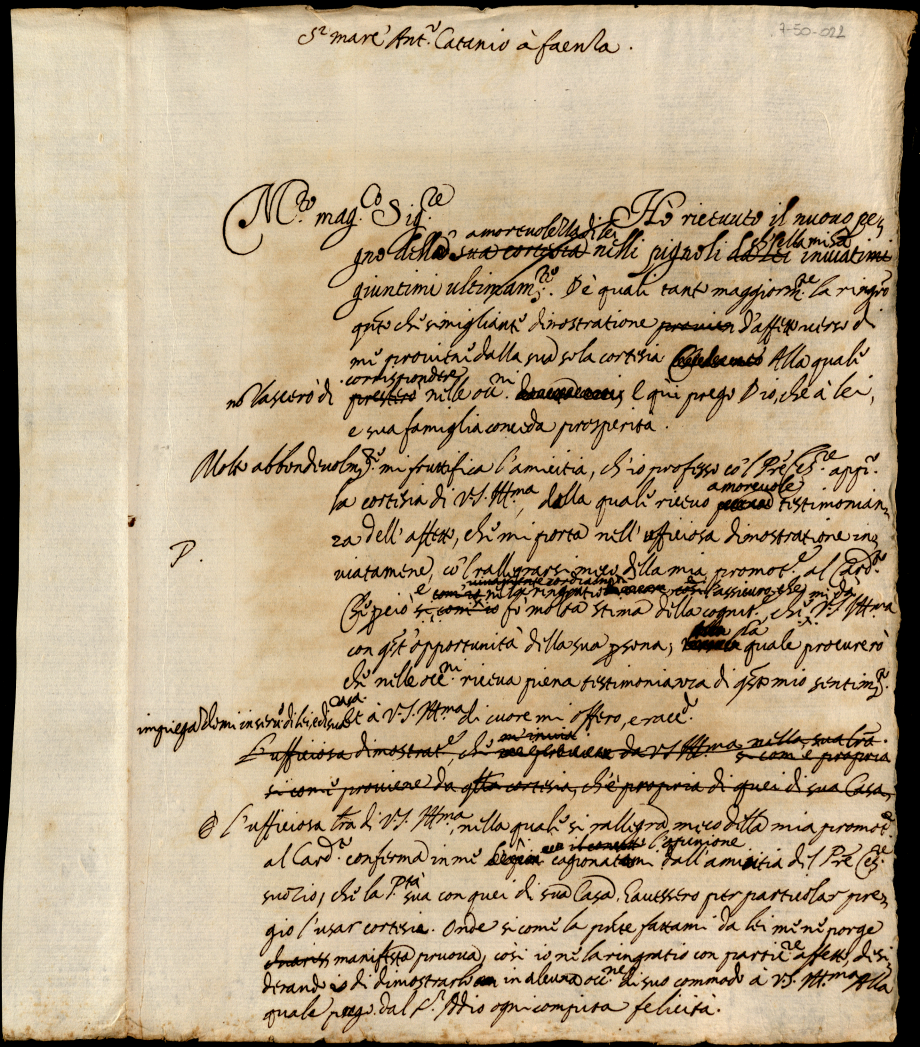 7-50-021
Sr. Marc' Ant.º Catanio à Faenza.
M.to mag.co Sig.re Hò riceuuto il nuouo pe-
amoreuolezza di lei
gno della sua cortesia nelli pignoli da lei inuiatimi
giuntimi ultimam.te. De quali tanto maggiorm.te la ringrº
qnto che simigliante dimostratione d'affetto uerso di
me prouiene dalla sua sola cortesia Alla quale
corrispondere
no lascerò di prestarò nelle occ.ni E qui prego Dio, che à lei,
e sua famiglia conceda prosperità.
Molto abbondeuolm.te mi fruttifica l'amicitia, ch'io professo co 'l Pre app.º
la cortesia di V.S. Ill.ma, dalla quale riceuo amoreuole testimonian-
za dell'affetto, che mi porta nell'ufficiosa dimostratione in-
P.
uiatamene, co 'l rallegrarsi meco della mia promot.e al Card.to
e uiuamente cordialm.te
come ne la ringratio l'assicuro, che mi dà
Che peio si come io fò molta stima della cognit.e che V.S. Ill.ma
con qst'opportunità della sua psona; alla quale procurerò
che nelle occ.ni riceua piena testimonianza di qsto mio sentim.to
Casa.
impiegadomi in seru.º di lei, e di sua Et à V.S. Ill.ma di cuore mi offero, e racc.do
m'inuia
L'ufficiosa dimostrat.e, che da V.S. Ill.ma nella sua lra.
si com'è propria
si come prouiene da qlla cortesia, ch'è propria di quei di sua Casa,
L'ufficiosa lra di V.S. Ill.ma, nella quale si rallegra meco della mia promot.e
il concetto l'opinione
al Card.to conferma in me cagionatami dall'amicitia del Pre
suo zio, che la Ptà sua con quei di sua Casa, hauessero per particolar pre-
gio l'usar cortesie. Onde si come la pnte fattami da lei me ne porge
manifesta pruoua, così io ne la ringratio con partic.re affetto, desi-
derando io di dimostrarlo in alcuna occ.ne di suo commodo à V.S. Ill.ma Alla
quale prego dal S.r Iddio ogni compiuta felicità.